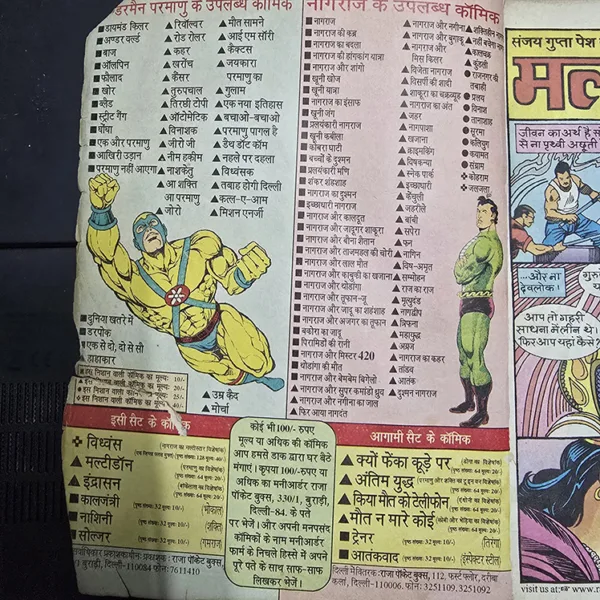 डरमैन परमाणु के उपलब्ध कॉमिक
■ डायमंड किलर
■ अण्डर वर्ल्ड
■ बाज
■ ऑलपिन
■ फौलाद
■ खोर
■ ब्लैड
■ स्ट्रीट गैंग
■ घोंघा
■ एक और परमाणु
■ आखिरी उड़ान
■ परमाणु नहीं आएगा
▲ रिवॉल्वर
▲ रोड रोलर
▲ कहर
▲ खरोंच
▲ कैंसर
▲ तुरुपचाल
▲ गुलाम
▲ तिरछी टोपी
▲ ऑटोमेटिक
▲ विनाशक
▲ जीरो जी
▲ नीम हकीम
▲ नाशकेतु
▲ आ शक्ति
आ परमाणु
▲ जीरो
▲ मौत सामने
▲ आई एम सॉरी
▲ कैक्टस
▲ जयकारा
परमाणु का
▲ चुम्मा
▲ एक नया इतिहास
▲ बचाओ-बचाओ
▲ परमाणु पागल है
▲ हैथ डॉट कॉम
▲ नहले पर दहला
▲ विध्वंसक
▲ तबाह होगी दिल्ली
▲ कत्ल-ए-आम
▲ मिशन एनर्जी
■ दुनिया खतरे में
■ डरपोक
■ एक से दो, दो से सौ
▲ हाहाकार
▲ उम्र कैद
▲ मोर्चा
■ इस निशान वाली कॉमिक का मूल्य: 10/-
20/-
25/-
❖ इस निशान वाली कॉमिक का मूल्य: 40/-
नागराज के उपलब्ध कॉमिक
■ नागराज
■ नागराज की कब्र
■ नागराज का बदला
■ नागराज की हांगकांग यात्रा
■ नागराज और शांगो
■ खूनी खोज
■ खूनी यात्रा
■ नागराज का इंसाफ
■ खूनी जंग
■ प्रलयंकारी नागराज
■ खूनी कबीला
■ कोबरा घाटी
■ बच्चों के दुश्मन
■ प्रलयंकारी मणि
■ शंकर शहंशाह
■ नागराज का दुश्मन
■ इच्छाधारी नागराज
■ नागराज और कालदूत
■ नागराज और जादूगर शाकूरा
■ नागराज और बौना शैतान
■ नागराज और ताजमहल की चोरी
■ नागराज और लाल मौत
■ नागराज और काबुकी का खजाना
■ नागराज और थोडांगा
■ नागराज और तूफान-जू
■ नागराज और जादू का शहंशाह
■ नागराज और अजगर का तूफान
■ बकोरा का जादू
■ पिरामिडों की रानी
■ नागराज और मिस्टर 420
■ थोडांगा की मौत
■ नागराज और बेमबेम बिगेलो
■ नागराज और सुपर कमांडो ध्रुव
■ नागराज और नगीना का जाल
■ फिर आया नागदंत
■ नागराज और नगीना
■ नागराज और बुगाकू
■ नागराज और
मिस किलर
■ विजेता नागराज
■ विसर्पी की शादी
■ शाकूरा का चक्रव्यूह
■ नागराज का अंत
▲ जहर
▲ नागपाशा
▲ खजाना
▲ क्राइमकिंग
▲ विषकन्या
▲ स्नेक पार्क
▲ इच्छाधारी
▲ केंचुली
▲ जहरीले
▲ बांबी
▲ सपेरा
▲ फन
▲ नागिन
▲ विष-अमृत
▲ सम्मोहन
▲ राज का राज
▲ मृत्युदंड
▲ नागद्वीप
▲ त्रिफना
▲ महायुद्ध
▲ अग्रज
▲ नागराज का कहर
▲ तांडव
▲ आतंक
▲ दुश्मन नागराज
▲ कुंडली
● राजनगर की
तबाही
● प्रलय
● विनाश
● तानाशाह
● सूरमा
● कलियुग
● कयामत
● संग्राम
● कोहराम
❖ जलजला
इसी सैट के कॉमिक
❖ विध्वंस
▲ मल्टीडॉन
▲ इंद्रासन
■ कालजंत्री
■ नाशिनी
■ सील्जर
(भोकाल)
(शक्ति)
(गमराज)
कोई भी 100/- रुपए
मूल्य या अधिक की कॉमिक
आप हमसे डाक द्वारा घर बैठे
मंगाएं। कृपया 100/-रुपए या
अधिक का मनीआर्डर राजा
पॉकेट बुक्स, 330/1, बुराड़ी,
दिल्ली-84. के पते
पर भेजें। और अपनी मनपसंद
कॉमिकों के नाम मनीआर्डर
फार्म के निचले हिस्से में अपने
पूरे पते के साथ साफ-साफ
लिखकर भेजें।
आगामी सैट के कॉमिक
▲ क्यों फेंका कूड़े पर
▲ अंतिम युद्ध
▲ किया मौत को टेलीफोन
▲ मौत न मारे कोई
■ ट्रेनर
■ आतंकवाद
(तिरंगा)
(इंस्पेक्टर स्टील)
राजा पॉकेट बुक्स
बुराड़ी, दिल्ली-110084 फोन:7611410
दिल्ली में वितरक: राजा पॉकेट बुक्स, 112, फर्स्ट फ्लोर, दरीबा
कलां, दिल्ली-110006. फोन: 3251109, 3251092
संजय गुप्ता पेश
जीवन का अर्थ है सं
से ना पृथ्वी अछूती
...और ना
देवलोक।
आप तो गहरी
साधना में लीन थे।
फिर आप यहां कैसे?
visit us at: